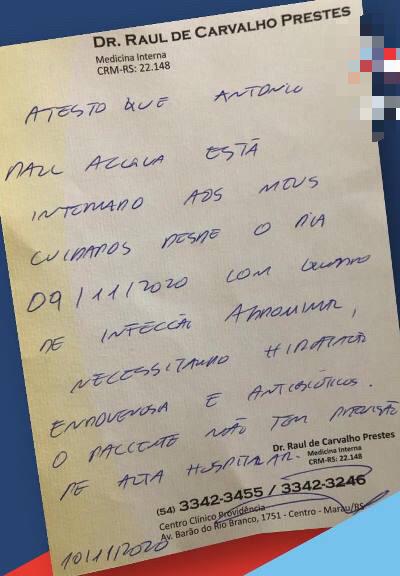 Dr. Raul de Carvalho Prestes
Medicina Interna
CRM-RS: 22.148
ATESTO QUE ANTONIO
DALL ACQUA ESTÁ
INTERNADO AOS MEUS
CUIDADOS DESDE O DIA
09/11/2020 COM QUADRO
DE INFECÇÃO ABDOMINAL,
NECESSITANDO HIDRATAÇÃO
ENDOVENOSA E ANTIBIÓTICOS.
O PACIENTE NÃO TEM PREVISÃO
DE ALTA HOSPITALAR.
Dr. Raul de Carvalho Prestes
Medicina Interna
CRM-RS: 22.148
(54) 3342-3455 / 3342-3246
Centro Clínico Providência
Av. Barão do Rio Branco, 1751 - Centro - Marau/RS
10/11/2020